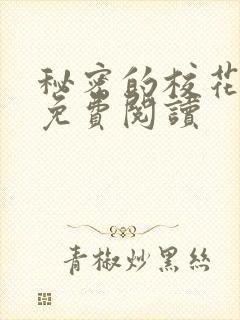 秘密的校花
免費閱讀
青椒炒黑絲